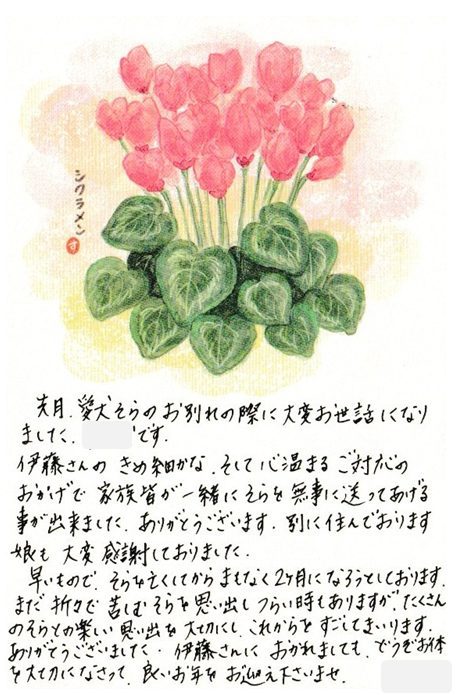 シクラメン
す
先月、愛犬そらのお別れの際に大変お世話になり
ました、です。
伊藤さんの きめ細かな、そして心温まる ご対応の
おかげで 家族皆が一緒にそらを 無事に送ってあげる
事が出来ました。ありがとうございます。別に住んでおります
娘も 大変 感謝しておりました。
早いもので、そらを亡くしてから まもなく2ヶ月になろうとしております。
まだ 折々で 苦しむ そらを思い出し つらい時もありますが、たくさん
のそらとの楽しい 思い出を 大切にし これからを すごしてまいります。
ありがとうございました。伊藤さんに おかれましても、どうぞお体
を大切になさって、良いお年を お迎え下さいませ。